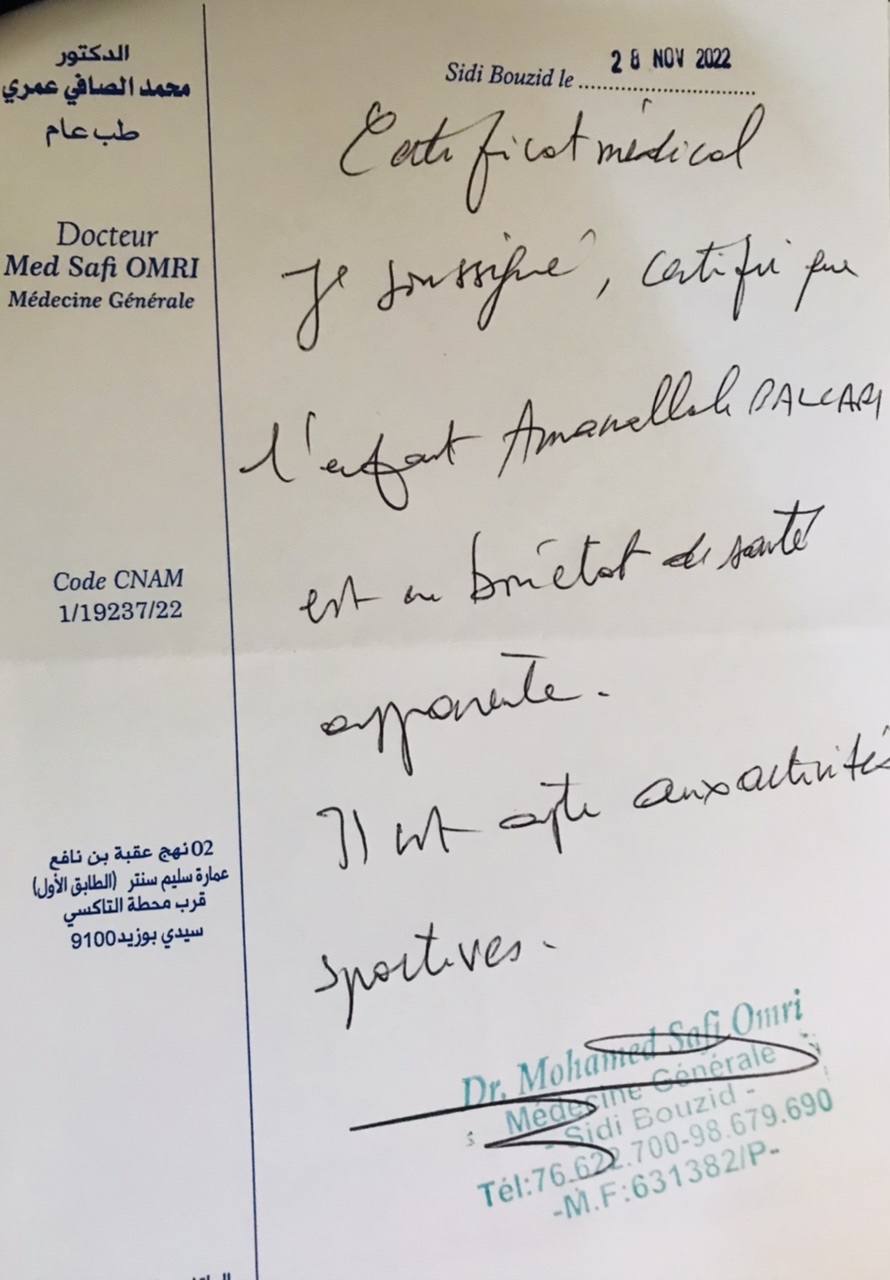 الدكتور
محمد الصافي عمري
طب عام
Docteur
Med Safi OMRI
Médecine Générale
Code CNAM
1/19237/22
02 نهج عقبة بن نافع
عمارة سليم سنتر (الطابق الأول)
قرب محطة التاكسي
سيدي بوزيد 9100
Sidi Bouzid le 28 NOV 2022
Certificat médical
Je soussigné, certifie que
l'enfant Amanallah
est en bon état de santé
apparente.
Il est apte aux activités
sportives.
Dr. Mohamed Safi Omri
Médecine Générale
- Sidi Bouzid -
Tél:76.622.700-98.679.690
-M.F:631382/P-